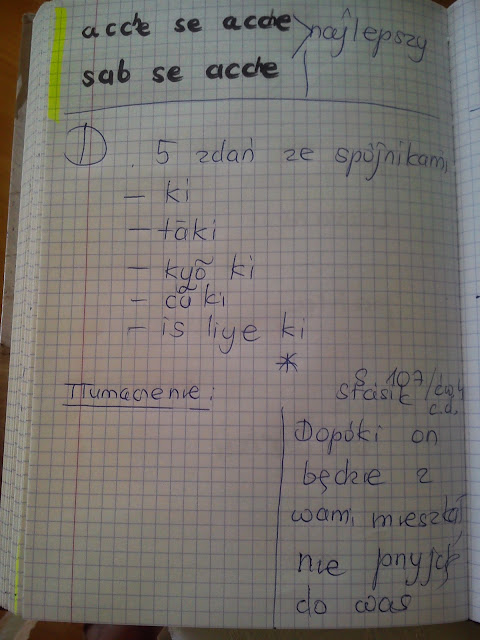 acche se acche
najlepszy
sab se acche
I . 5 zdań ze spójnikami
- ki
- tāki
- kyõ ki
- cũ ki
- is liye ki
*
Tłumaczenie:
s. 107/ćw. 4
Stasik c.d.
Dopóki on
będzie z
wami mieszkał
nie przyjdę
do was